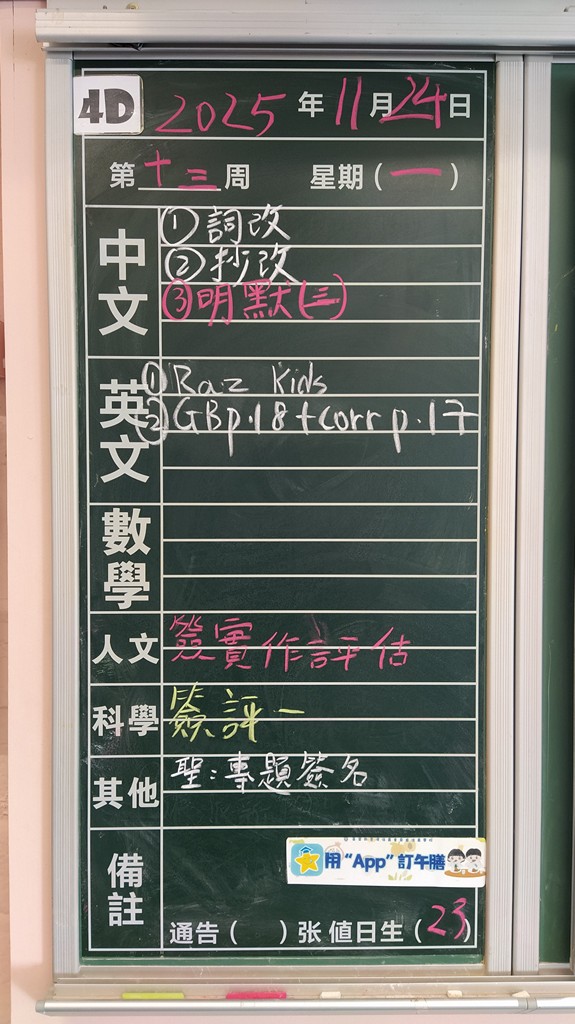 4D
2025年11月24日
第十三周 星期(一)
中文
①詞改
②抄改
③明默(三)
英文
①Raz Kids
②GBp.18+corr p.17
數學
人文
簽實作評估
科學
簽評一
其他
聖:專題簽名
備註
用“App”訂午膳
通告( )张 值日生(23)